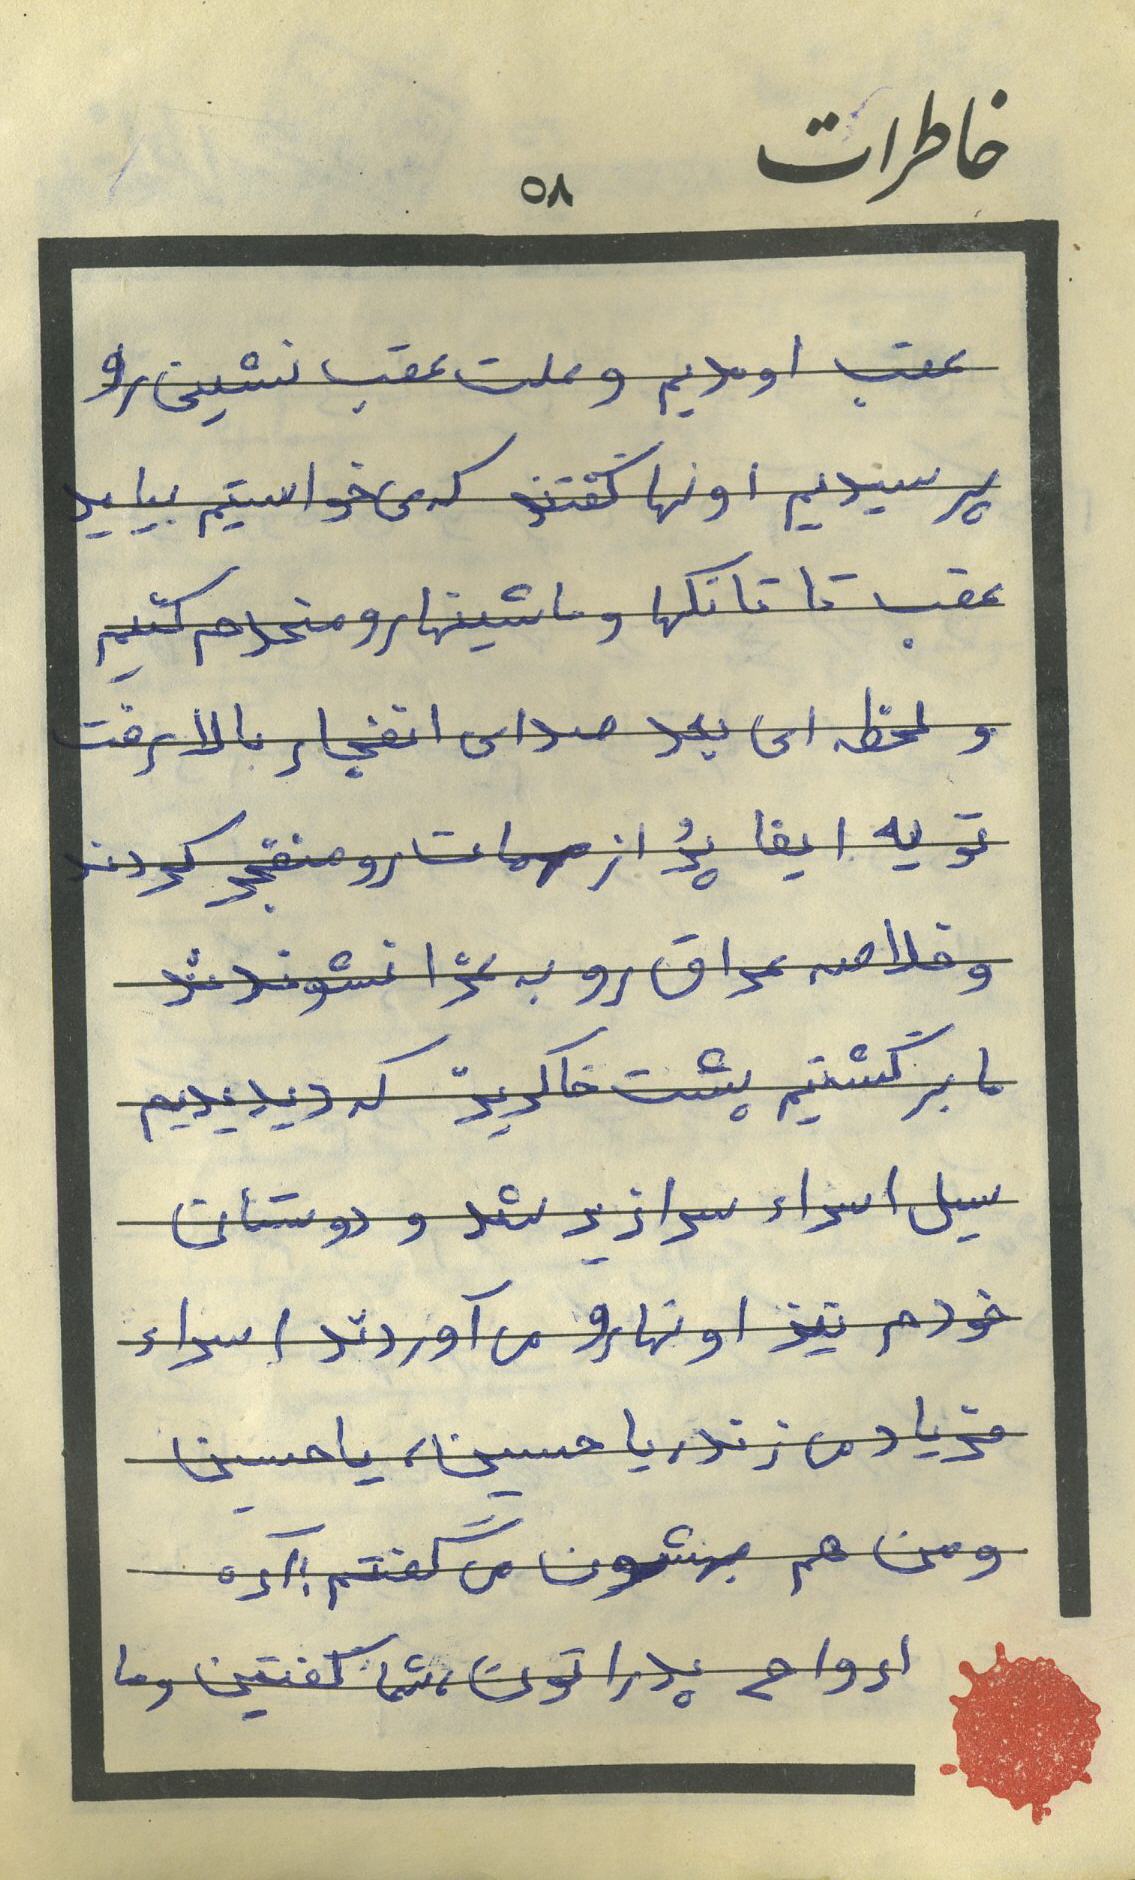 خاطرات
۵۸
عقب اومدیم و علت عقب نشینی رو
پرسیدیم اونها گفتند که می خواستیم بیاید
عقب تا تانکها و ماشینها رو منحدم کنیم
و لحظه ای بعد صدای انفجار بالا رفت
تو یه ایفا پُر از مهمات رو منفجر کردند
و خلاصه عراق رو به عزا نشوندند
ما برگشتیم پشت خاکریز که دیدیم
سیل اسراء سرازیر شد و دوستان
خودم نیز اونها رو می آوردند اسراء
فریاد می زندن یا حسین، یا حسین
و من هم بهشون می گفتم آره
ارواح پدراتون، شما گفتین و ما